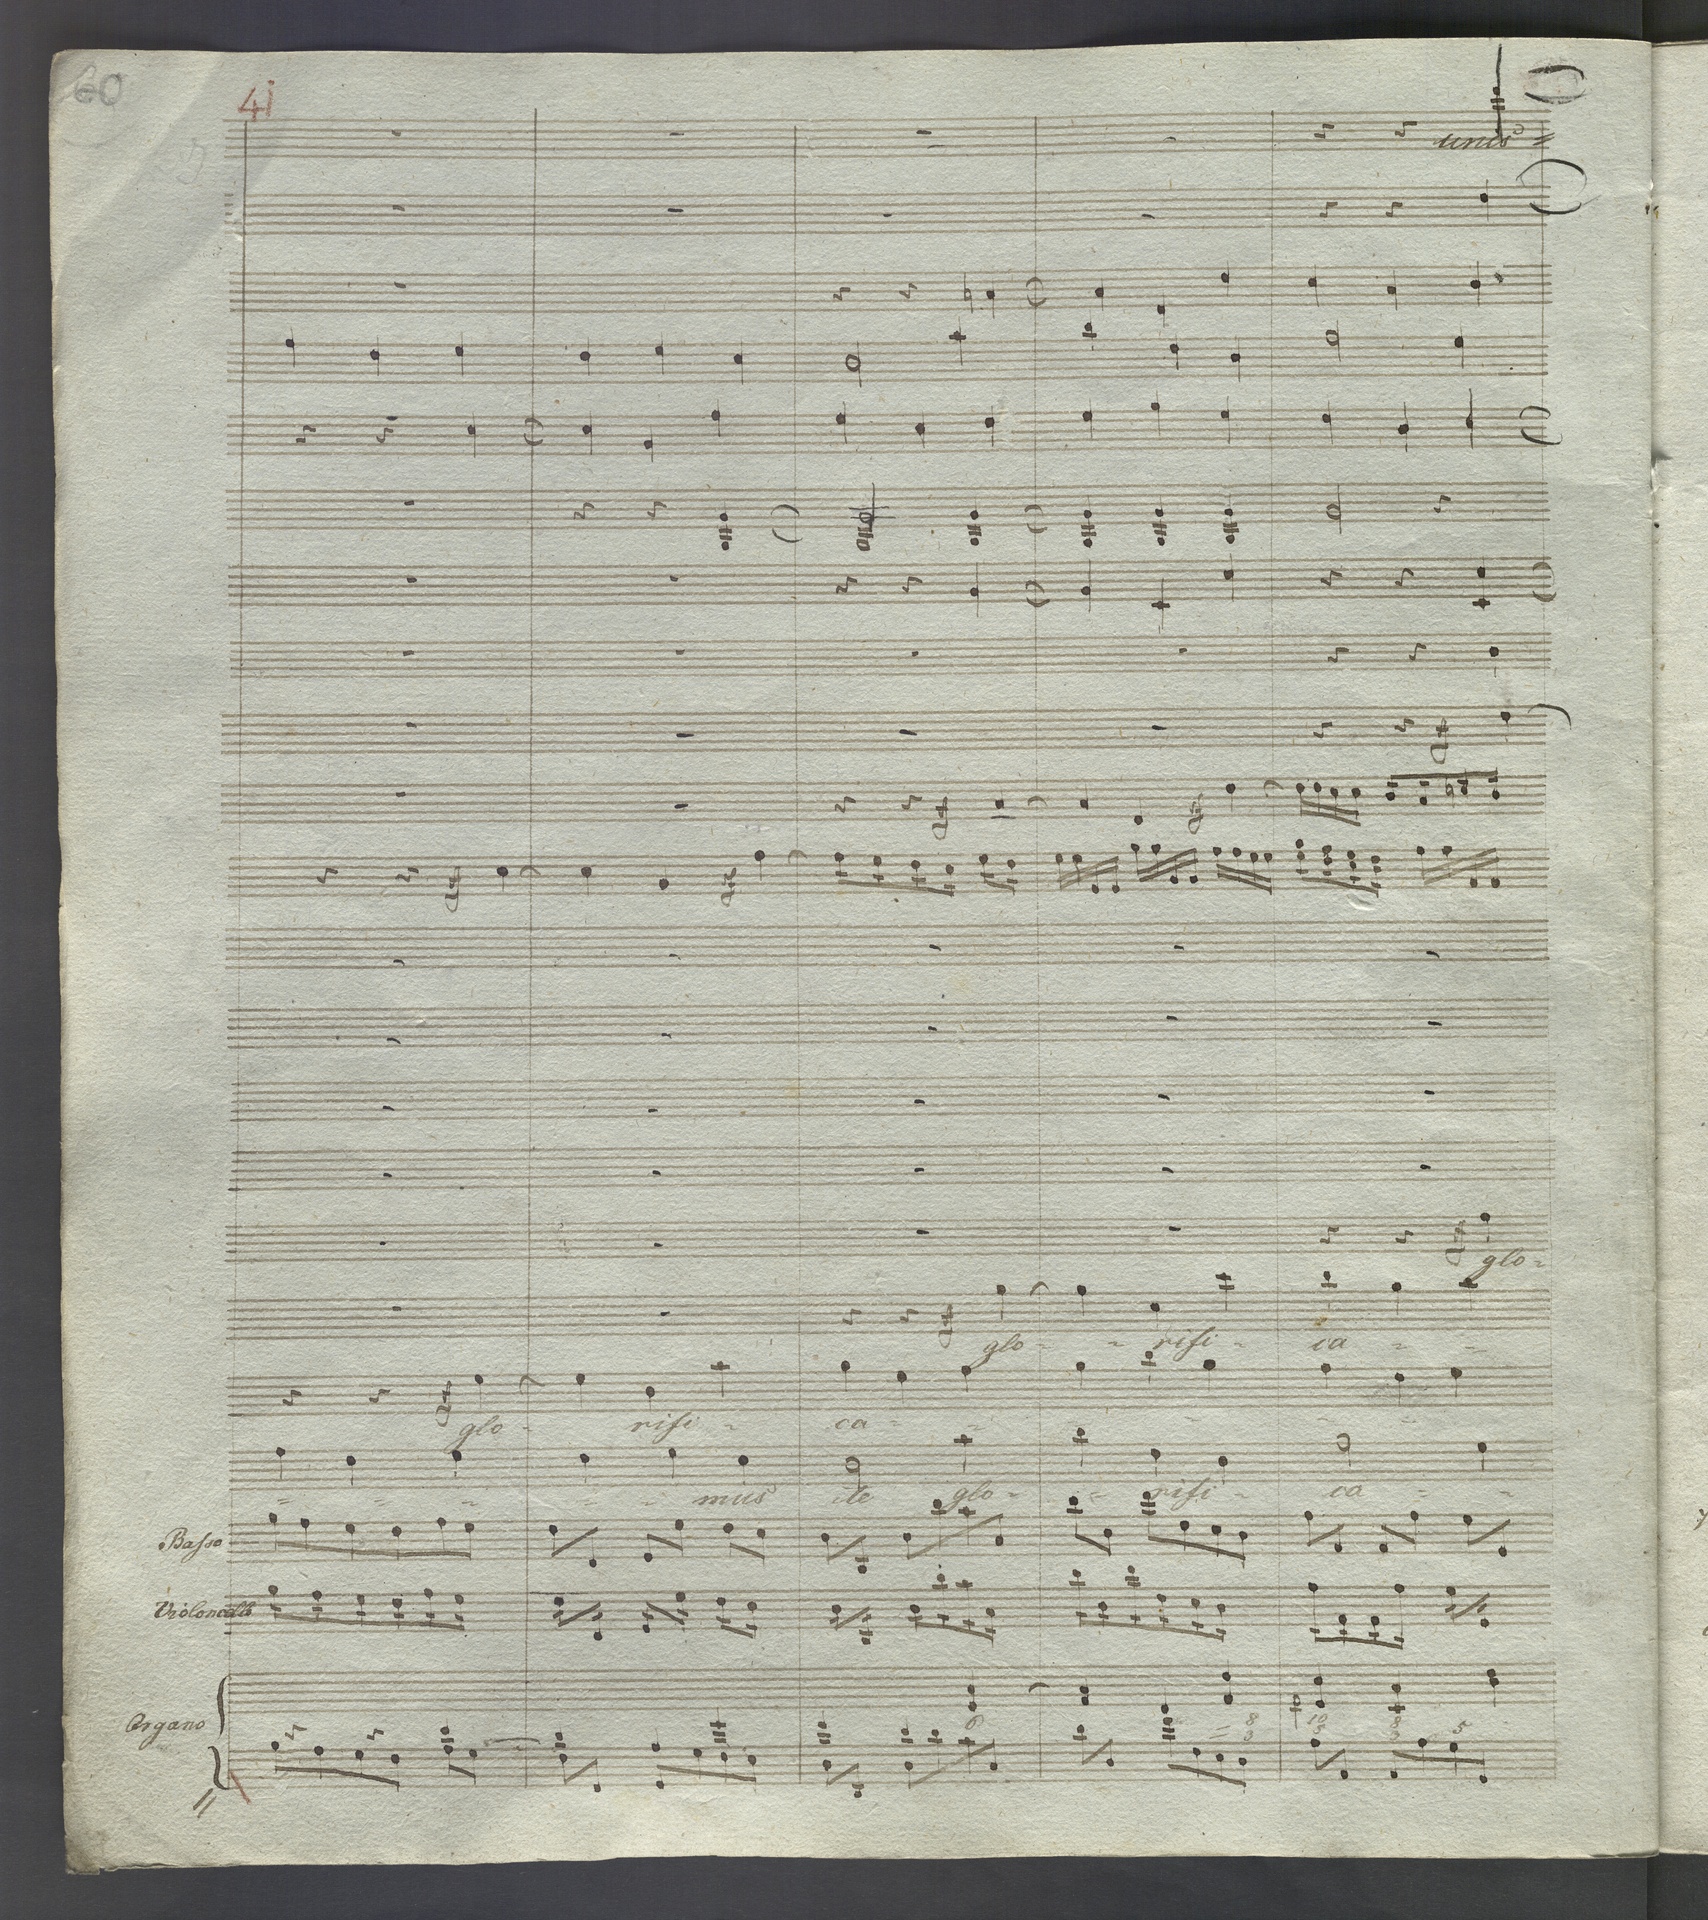 60
41
unis
glo-
glo - - rifi - ca - -
glo - rifi - ca - -
- - - - - mus te glo - - rifi - ca - -
Basso
Violoncello
6 8 3 10 5 8 3 5
Organo